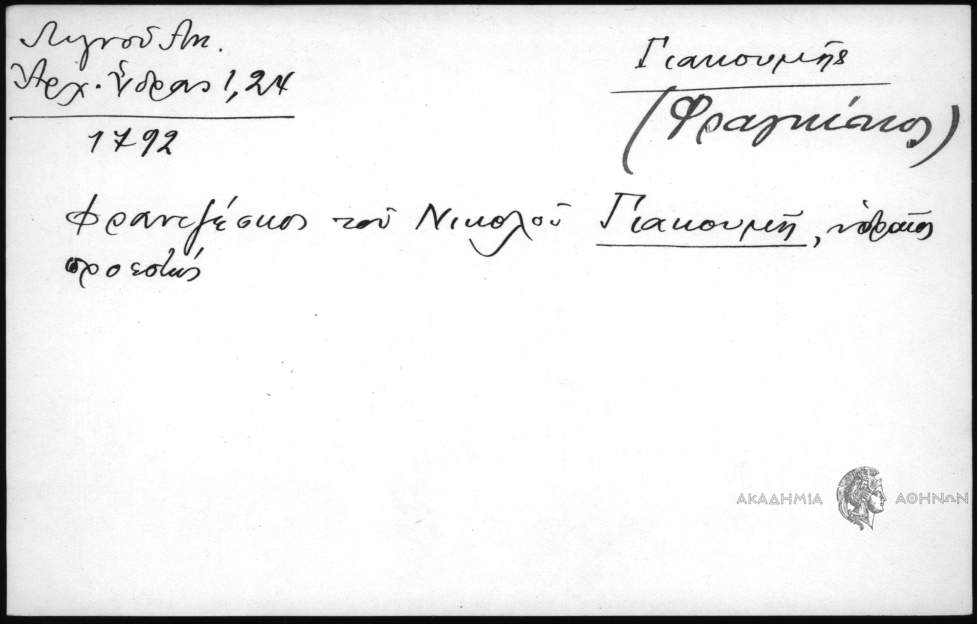 Λιγνοῦ Αντ.
Ἀρχ. Ὕδρας 1, 24
1792
Γιακουμῆς
(Φραγκίσκος)
Φραντζέσκος τοῦ Νικολοῦ Γιακουμῆ, ὑδραῖος
προεστώς
ΑΚΑΔΗΜΙΑ ΑΘΗΝΩΝ